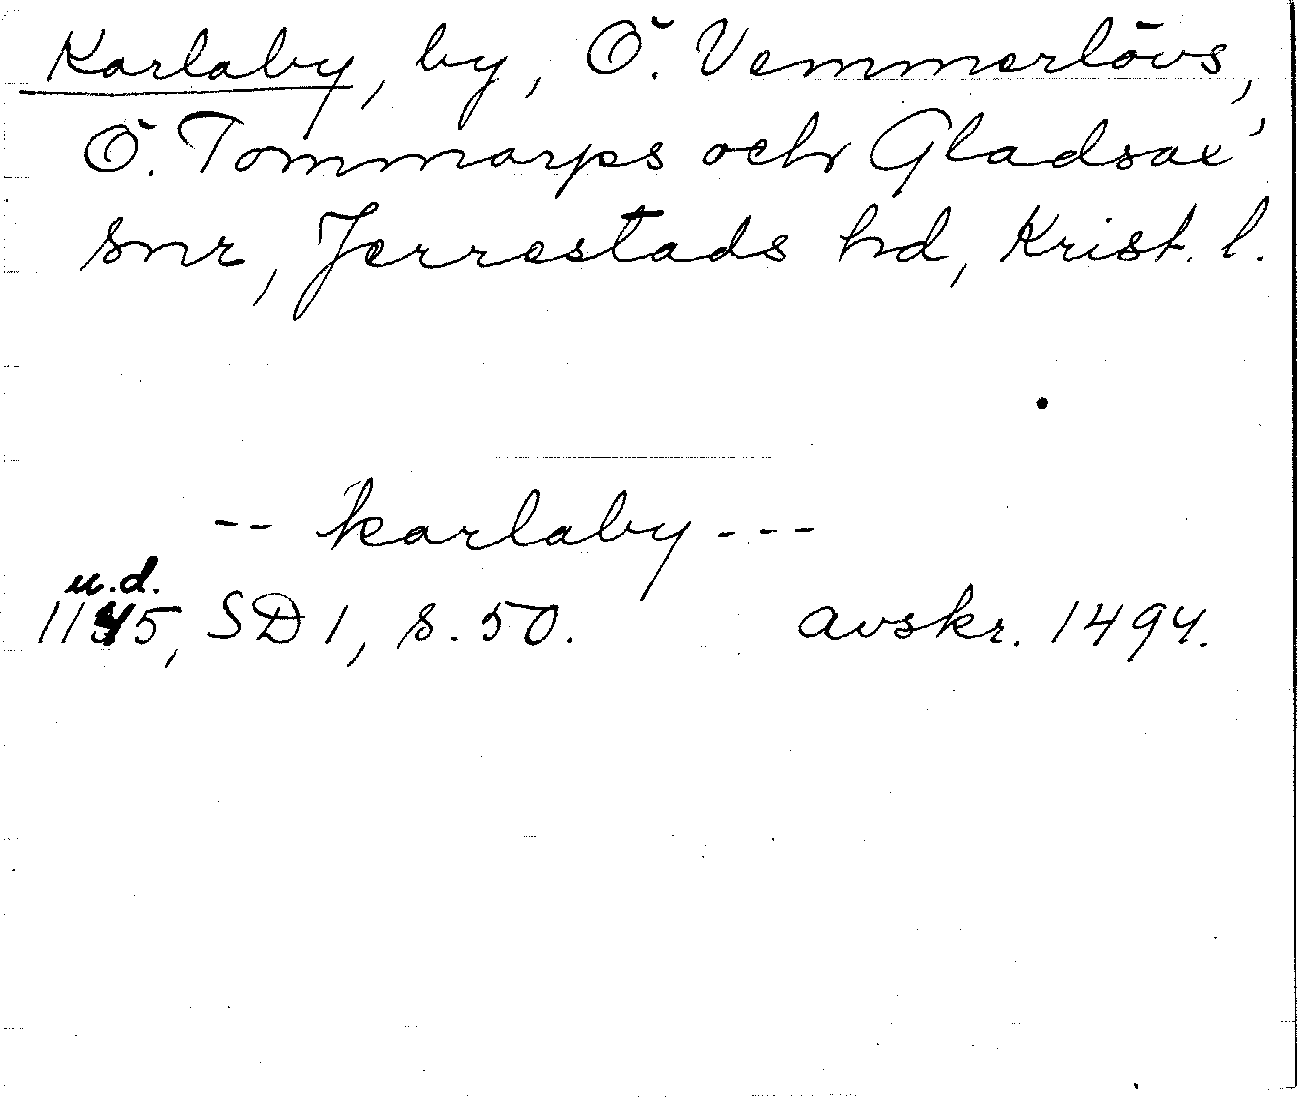 Karlaby, by, Ö. Vemmerlövs,
Ö. Tommarps och Gladsax'
snr, Jerrestads hd, Krist. l.
-- karlaby ---
u.d.
1145, SD 1, s. 50. avskr. 1494.